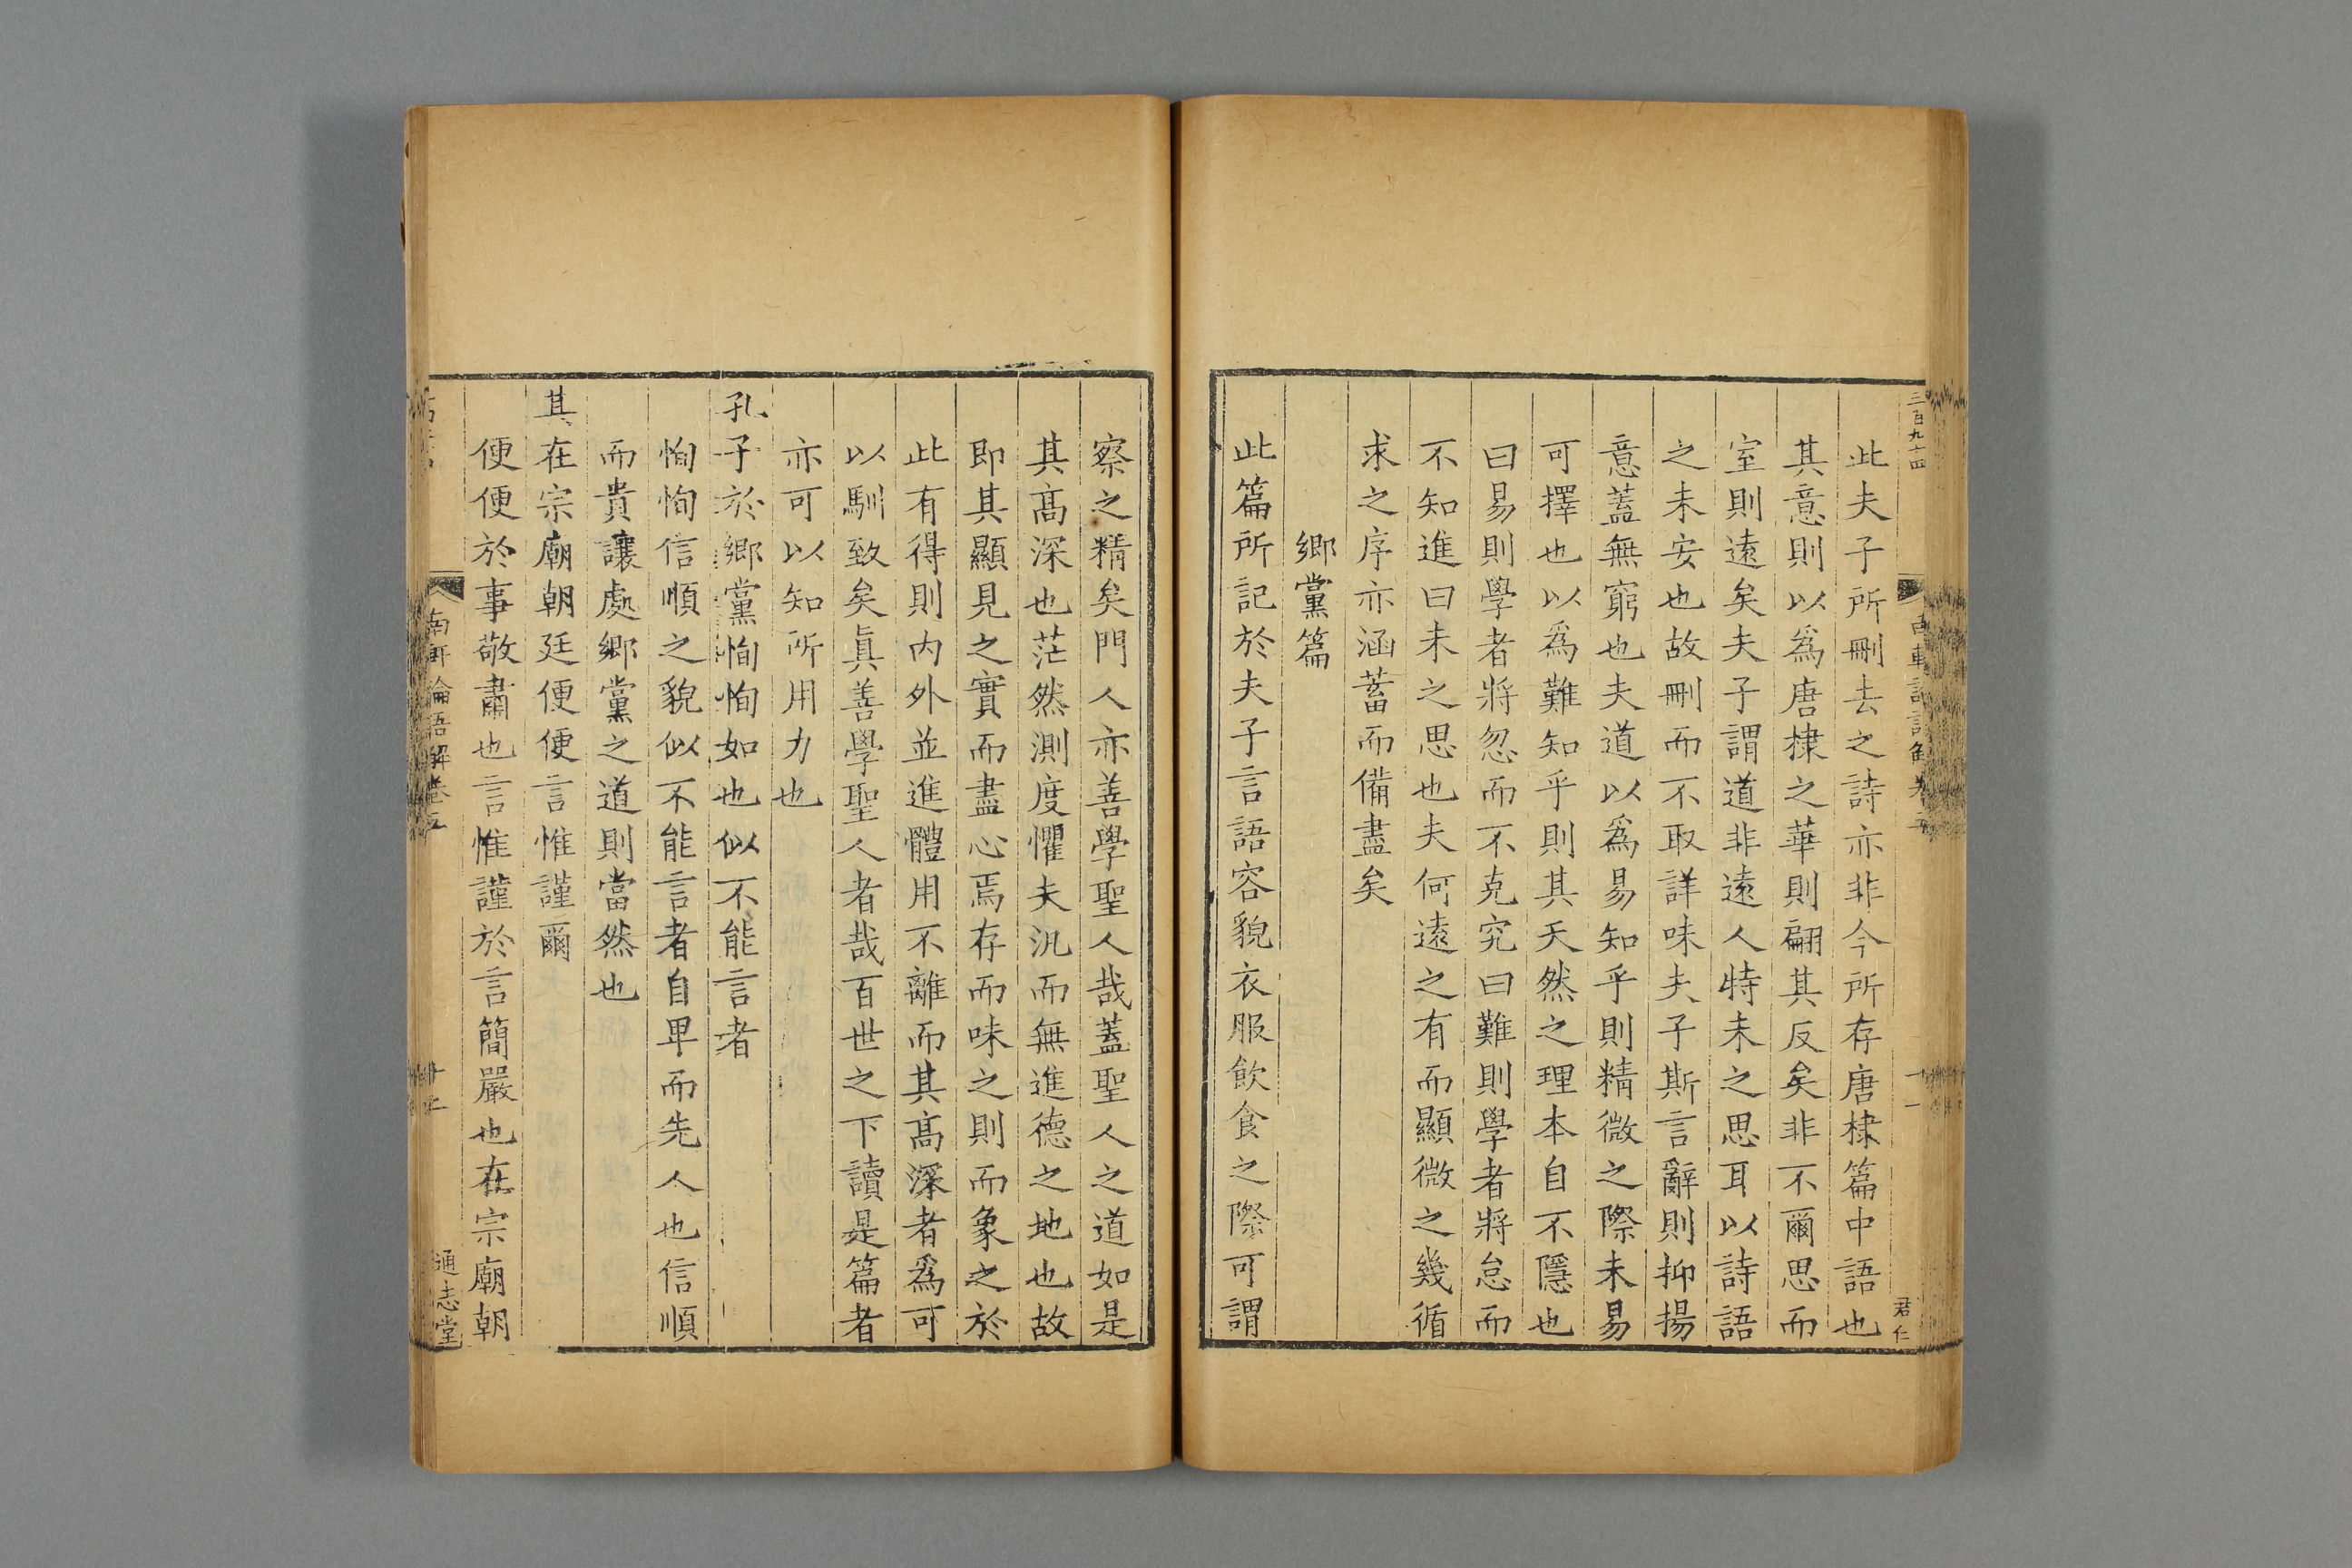 三百九十四
君仁
此夫子所刪去之詩亦非今所存唐棣篇中語也
其意則以爲唐棣之華則翩其反矣非不爾思而
室則遠矣夫子謂道非遠人特未之思耳以詩語
之未安也故刪而不取詳味夫子斯言辭則抑揚
意蓋無窮也夫道以爲易知乎則精微之際未易
可擇也以爲難知乎則其天然之理本自不隱也
曰易則學者將忽而不克究曰難則學者將怠而
不知進曰未之思也夫何遠之有而顯微之幾循
求之序亦涵蓄而備盡矣
鄉黨篇
此篇所記於夫子言語容貌衣服飲食之際可謂
察之精矣門人亦善學聖人哉蓋聖人之道如是
其髙深也茫然測度懼夫汎而無進德之地也故
即其顯見之實而盡心焉存而味之則而象之於
此有得則内外並進體用不離而其髙深者爲可
以馴致矣眞善學聖人者哉百世之下讀是篇者
亦可以知所用力也
孔子於鄉黨恂恂如也似不能言者
恂恂信順之貌似不能言者自卑而先人也信順
而貴讓處鄉黨之道則當然也
其在宗廟朝廷便便言惟謹爾
便便於事敬肅也言惟謹於言簡嚴也在宗廟朝
南軒論語解卷五
通志堂